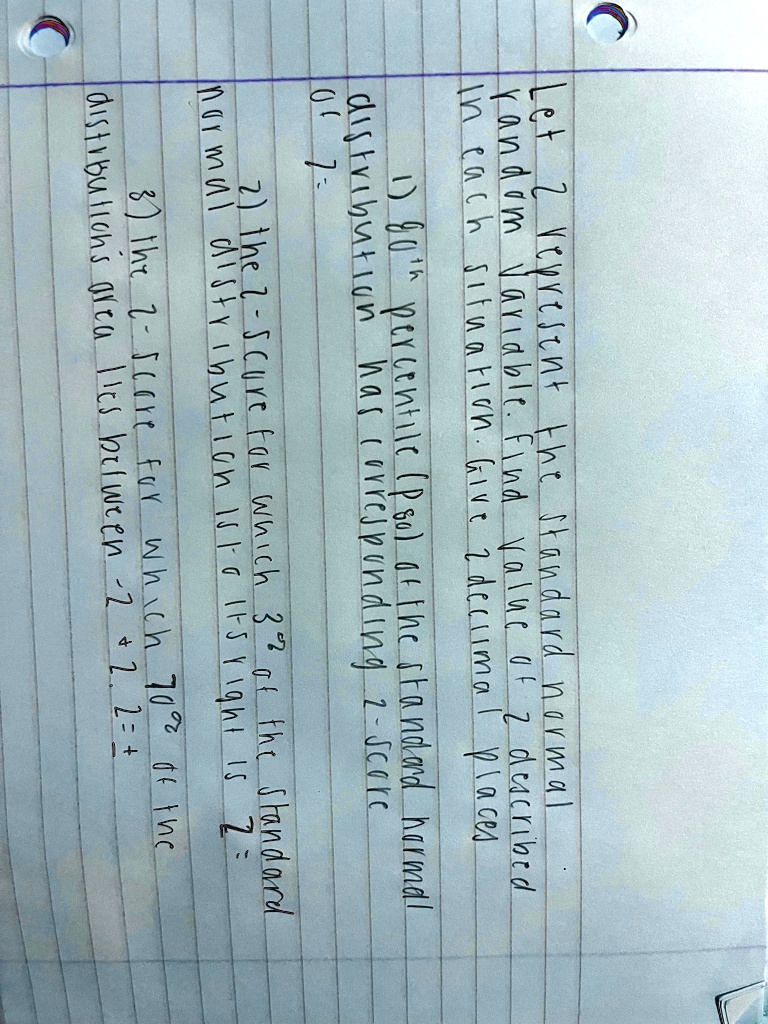 Let Z represent the standard normal
random variable. find value of Z described
in each situation. Give 2 decimal places
1) 80th percentile (P80) of the standard normal
distribution has corresponding z-score
of Z=
2) the z-score for which 3% of the standard
normal distribution is to its right is Z=
3) the z-score for which 70% of the
distributions area lies between -Z + Z. Z= ±